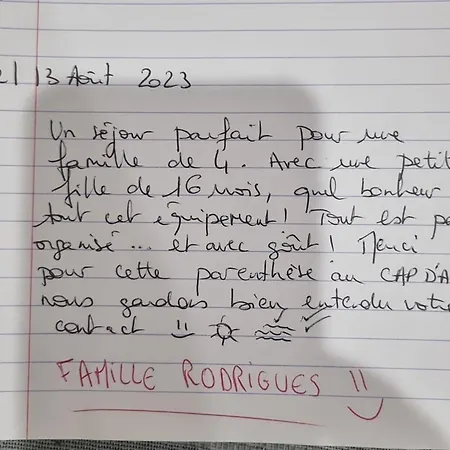 13 Août 2023
Un séjour parfait pour une
famille de 4. Avec une petit
fille de 16 mois, quel bonheur
tout cet équipement! Tout est pe
organisé... et avec goût! Merci
pour cette parenthèse au CAP D'A
nous gardons bien entendu votre
contact
FAMILLE RODRIGUES